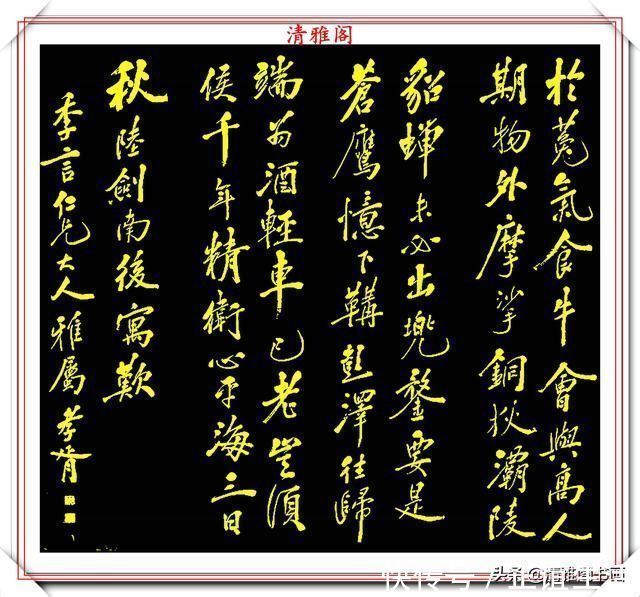 清雅阁
於菟氣食牛會與高人
期物外摩挲銅狄灞陵
貂蟬未必出兜鍪要是
蒼鷹憶下鞲彭澤往歸
端為酒輕車已老豈須
侯千年精衛心平海三日
秋陸劍南後寓歎
季言仁兄大人雅屬孝胥
头条@清雅阁书画
快传号 /